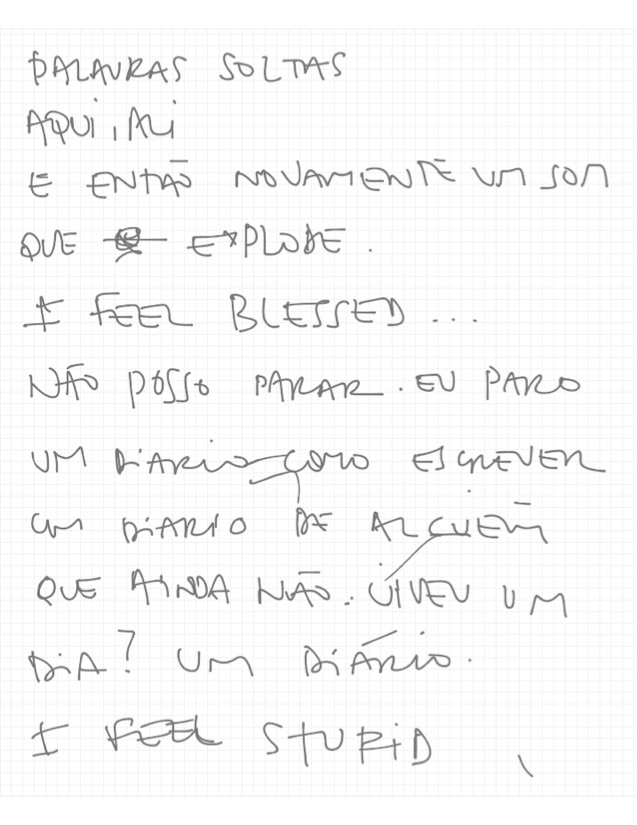 PALAVRAS SOLTAS
AQUI, ALI
E ENTÃO NOVAMENTE UM SOM
QUE EXPLODE.
I FEEL BLESSED...
NÃO POSSO PARAR. EU PARO
UM DIARIO COMO ESCREVER
UM DIARIO DE ALGUÉM
QUE AINDA NÃO. VIVEU UM
DIA? UM DIÁRIO.
I FEEL STUPID